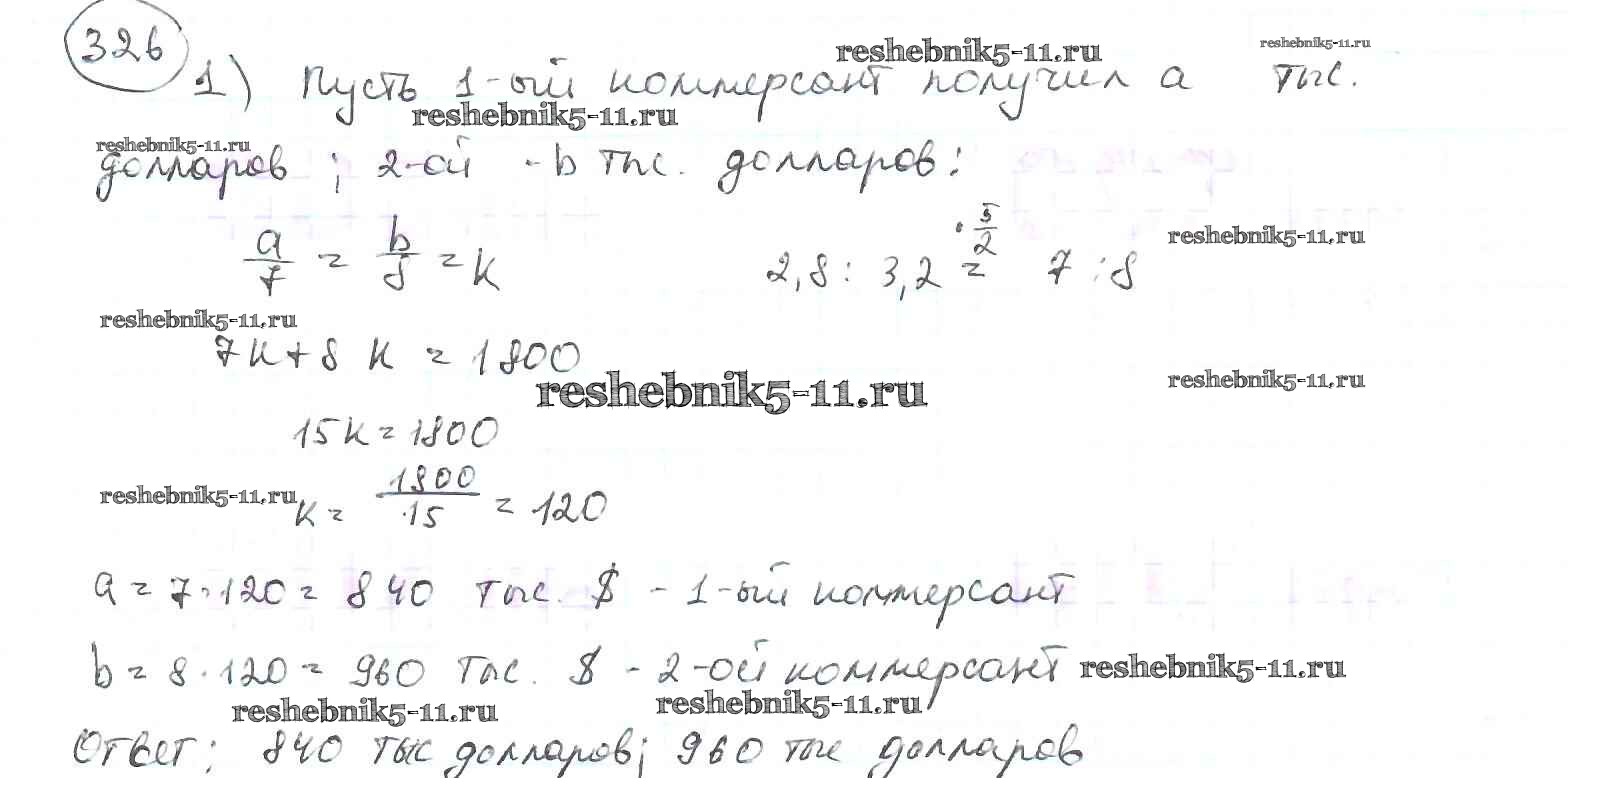 326
reshebnik5-11.ru
reshebnik5-11.ru
1) Пусть 1-ый коммерсант получил a тыс.
reshebnik5-11.ru
reshebnik5-11.ru
долларов; 2-ой - b тыс. долларов:
a/7 = b/8 = k
2,8 : 3,2 =^{· 5/2} 7 : 8
reshebnik5-11.ru
reshebnik5-11.ru
7k+8k = 1800
reshebnik5-11.ru
reshebnik5-11.ru
15k = 1800
reshebnik5-11.ru
k = 1800/15 = 120
a = 7·120 = 840 тыс. $ - 1-ый коммерсант
b = 8·120 = 960 тыс. $ - 2-ой коммерсант
reshebnik5-11.ru
reshebnik5-11.ru
reshebnik5-11.ru
Ответ: 840 тыс долларов; 960 тыс долларов